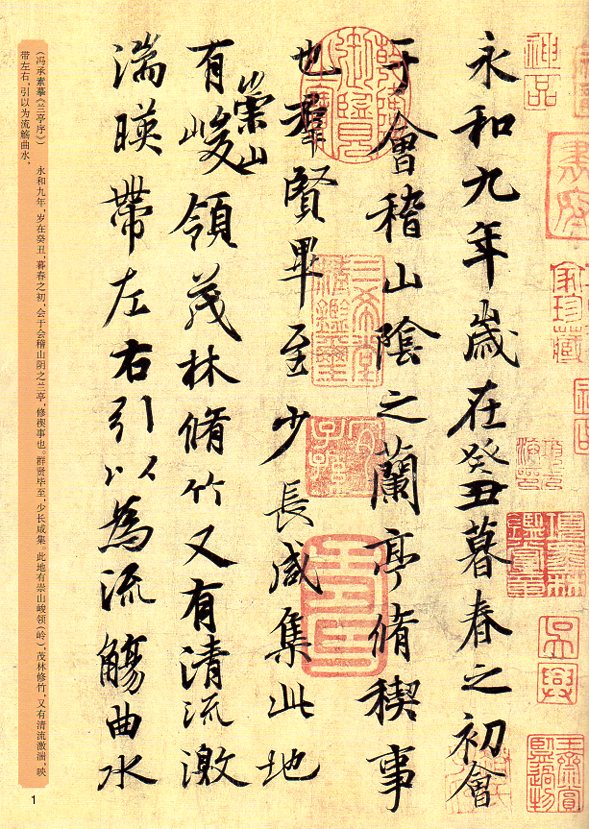 神品
家珍藏
吳興
永和九年歲在癸丑暮春之初會
于會稽山陰之蘭亭脩稧事
三希堂精鑑璽
宜子孫
也羣賢畢至少長咸集此地
有崇山峻領茂林脩竹又有清流激
湍暎帶左右引以為流觴曲水
（冯承素摹《兰亭序》） 永和九年，岁在癸丑，暮春之初，会于会稽山阴之兰亭，修禊事也。群贤毕至，少长咸集。此地有崇山峻领（岭），茂林修竹，又有清流激湍，映
带左右，引以为流觞曲水，
1